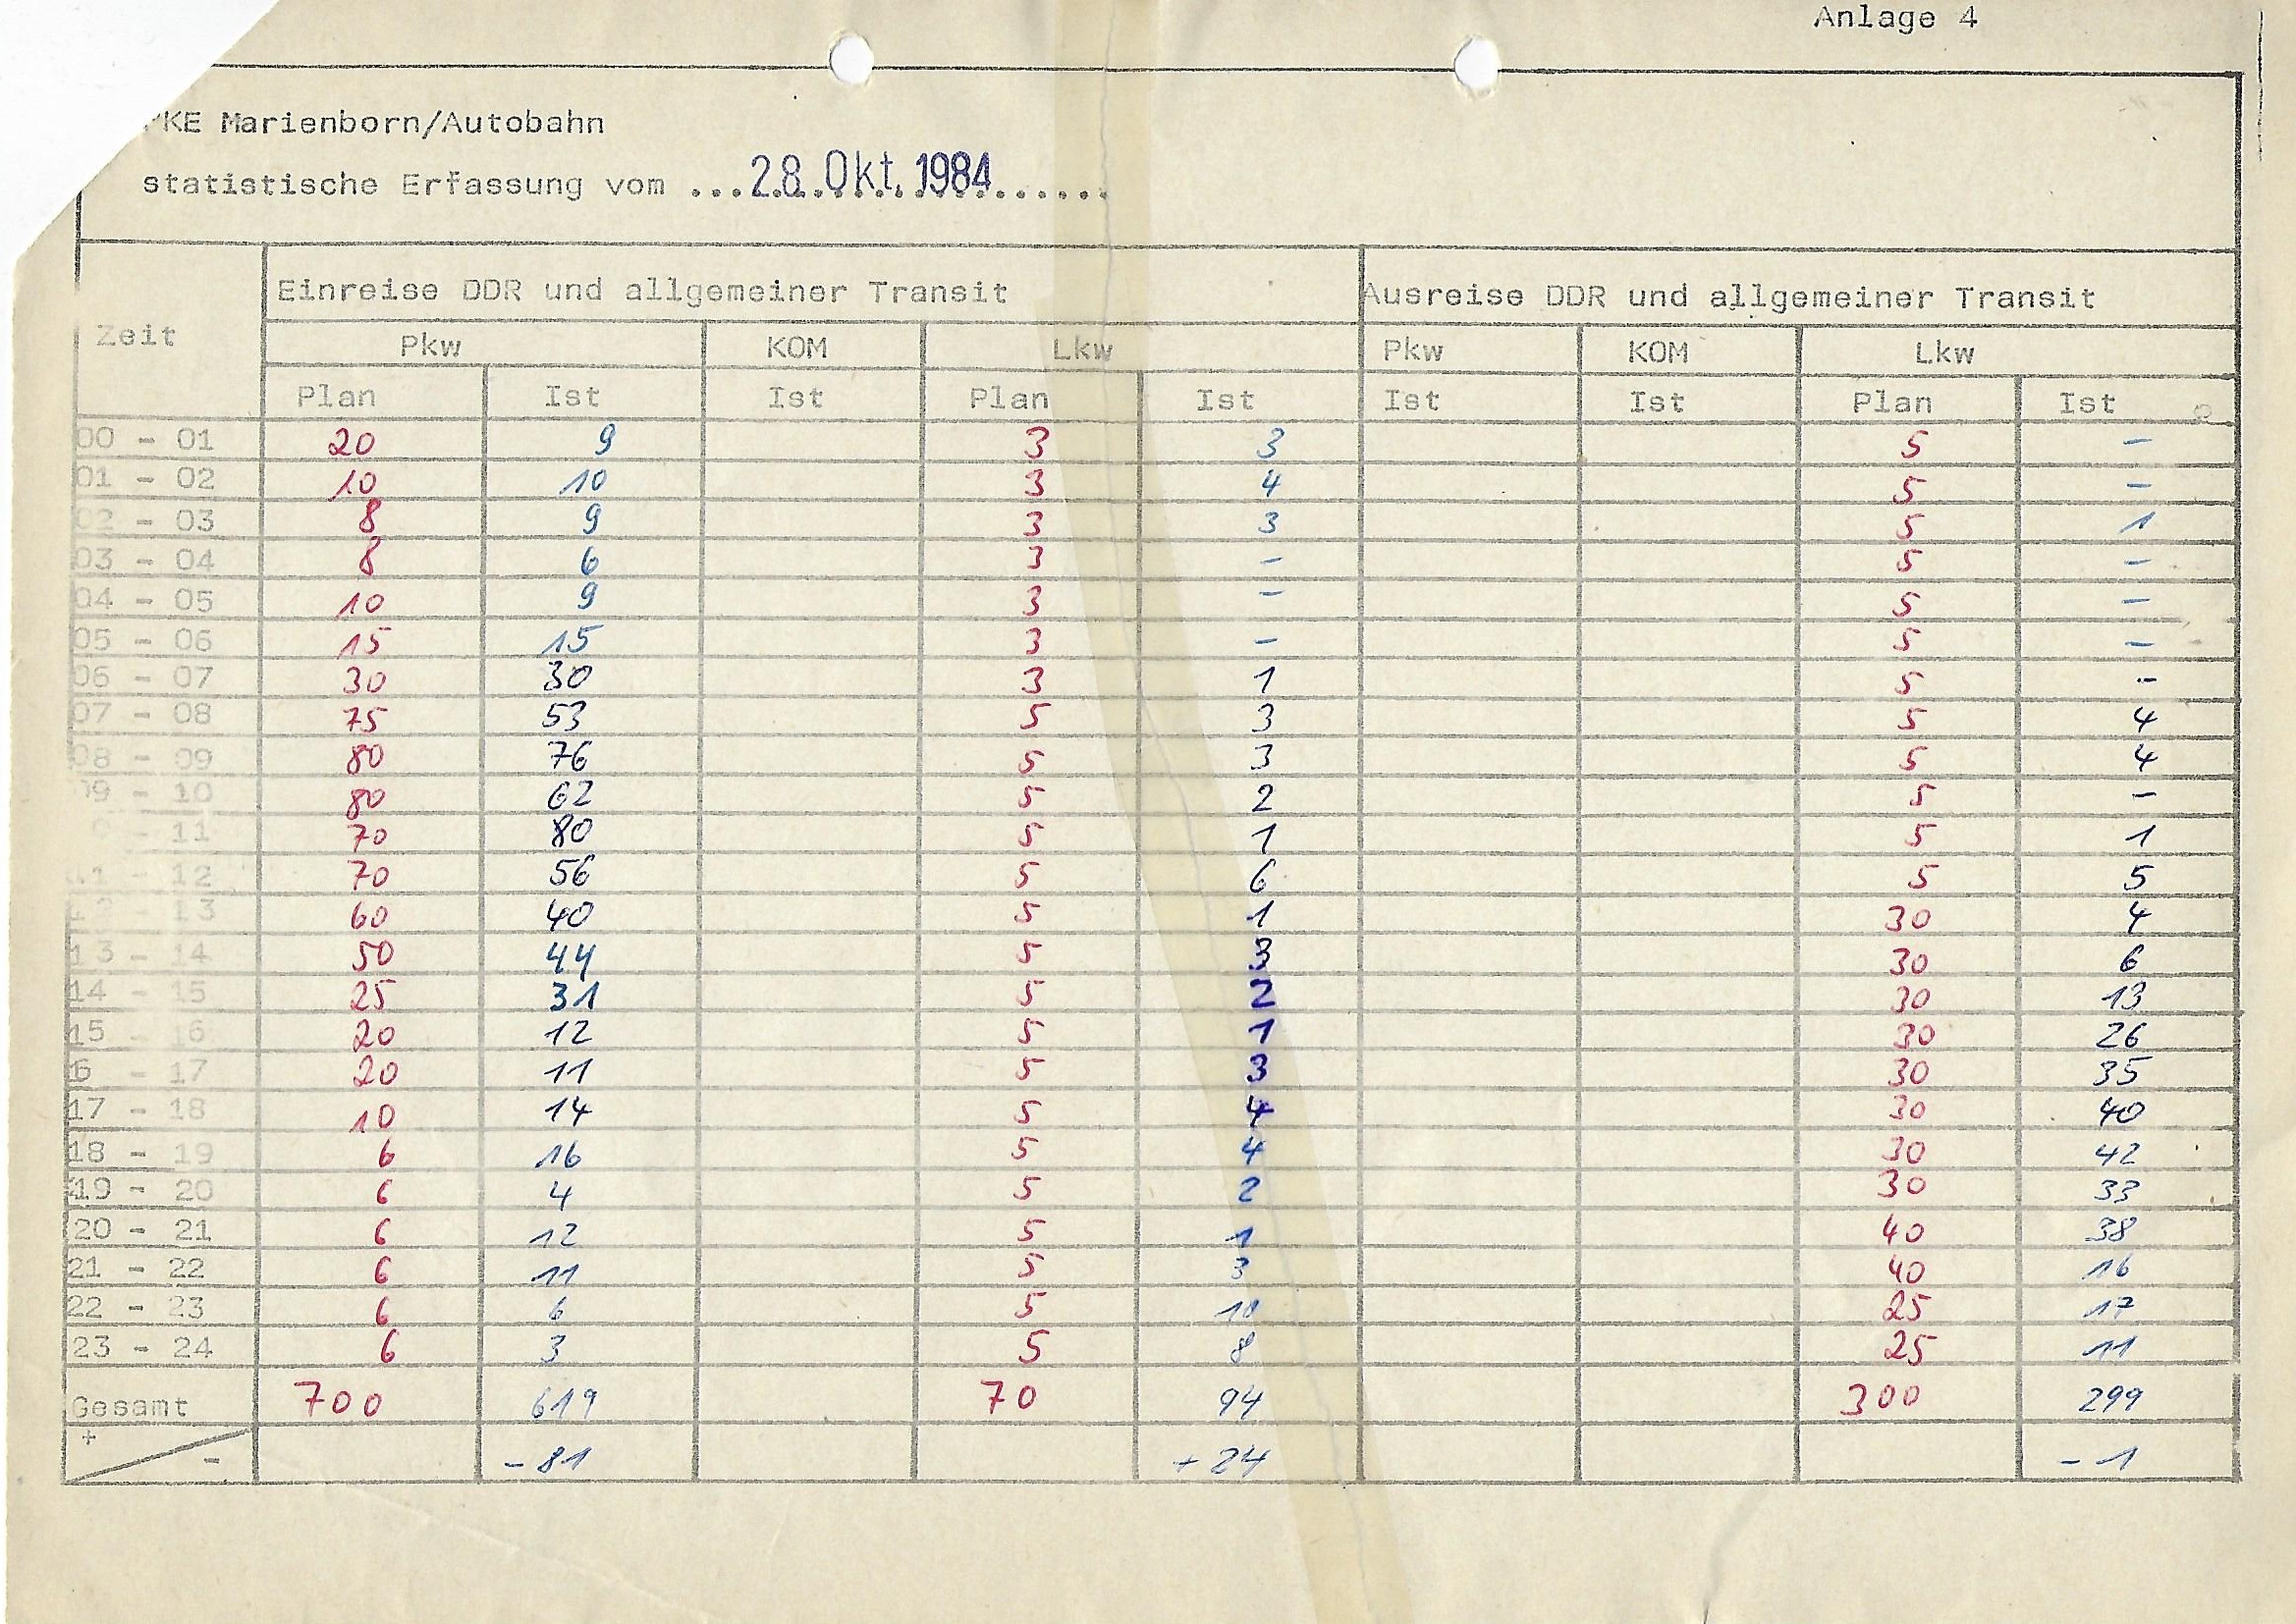 Anlage 4
PKE Marienborn/Autobahn
statistische Erfassung vom ...28. Okt. 1984......
Zeit Einreise DDR und allgemeiner Transit Ausreise DDR und allgemeiner Transit
Pkw KOM Lkw Pkw KOM Lkw
Plan Ist Ist Plan Ist Ist Ist Plan Ist
00 - 01 20 9 3 3 5 -
01 - 02 10 10 3 4 5 -
02 - 03 8 9 3 3 5 1
03 - 04 8 6 3 - 5 -
04 - 05 10 9 3 - 5 -
05 - 06 15 15 3 - 5 -
06 - 07 30 30 3 1 5 -
07 - 08 75 53 5 3 5 4
08 - 09 80 76 5 3 5 4
09 - 10 80 62 5 2 5 -
- 11 70 80 5 1 5 1
11 - 12 70 56 5 6 5 5
- 13 60 40 5 1 30 4
13 - 14 50 44 5 3 30 6
14 - 15 25 31 5 2 30 13
15 - 16 20 12 5 1 30 26
6 - 17 20 11 5 3 30 35
17 - 18 10 14 5 4 30 40
18 - 19 6 16 5 4 30 42
19 - 20 6 4 5 2 30 33
20 - 21 6 12 5 1 40 38
21 - 22 6 11 5 3 40 16
22 - 23 6 6 5 10 25 17
23 - 24 6 3 5 8 25 11
Gesamt 700 619 70 94 300 299
+ - - 81 + 24 - 1